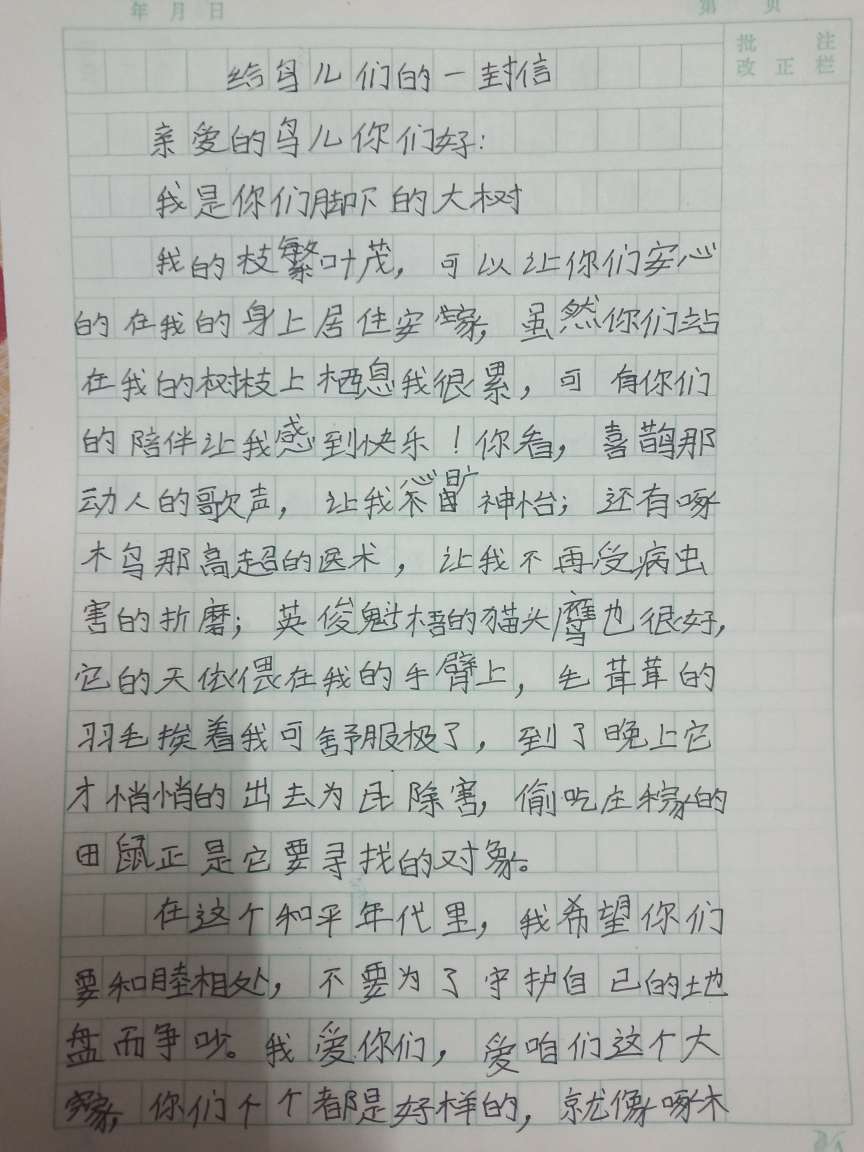 年 月 日 第 页
批 注
改 正 栏
给鸟儿们的一封信
亲爱的鸟儿你们好:
我是你们脚下的大树
我的枝繁叶茂，可以让你们安心
的在我的身上居住安家，虽然你们站
在我的树枝上栖息我很累，可有你们
的陪伴让我感到快乐！你看，喜鹊那
动人的歌声，让我心旷神怡；还有啄
木鸟那高超的医术，让我不再受病虫
害的折磨；英俊魁梧的猫头鹰也很好，
它白天依偎在我的手臂上，毛茸茸的
羽毛挨着我可舒服极了，到了晚上它
才悄悄的出去为民除害，偷吃庄稼的
田鼠正是它要寻找的对象。
在这个和平年代里，我希望你们
要和睦相处，不要为了守护自己的地
盘而争吵。我爱你们，爱咱们这个大
家，你们个个都是好样的，就像啄木